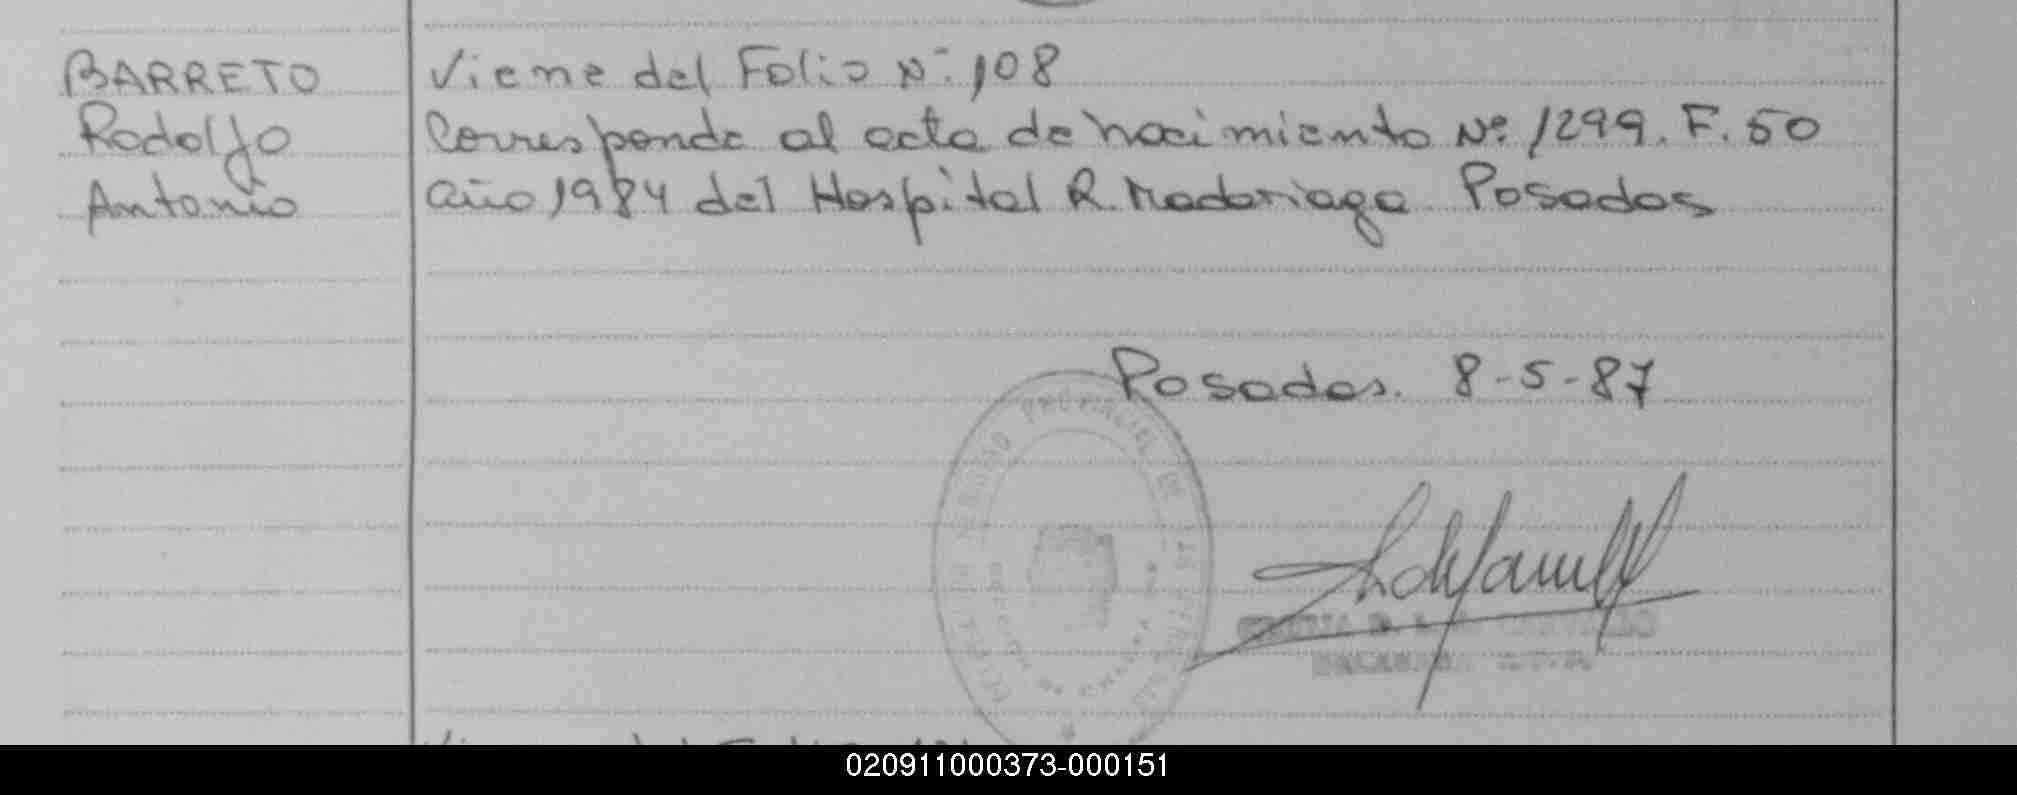 BARRETO
Rodolfo
Antonio
Viene del Folio Nº 108
Corresponde al acta de nacimiento Nº 1299. F. 50
año 1984 del Hospital R. Madariaga Posadas
Posadas. 8-5-87
PROVINCIAL DE LAS
020911000373-000151